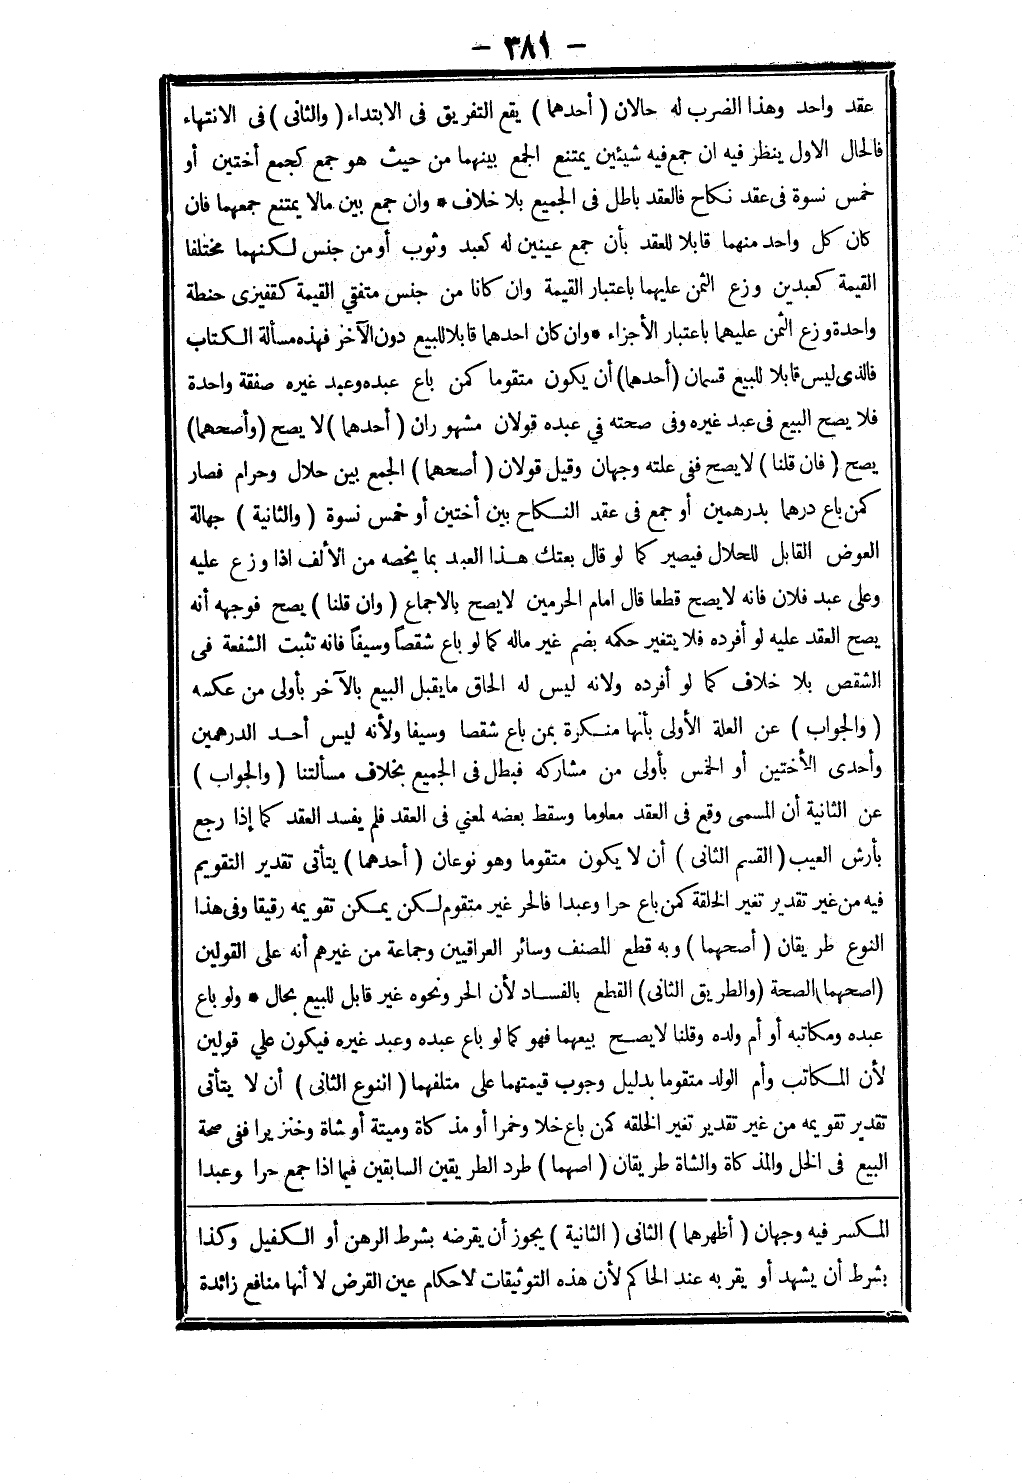 - ٣٨١ -
عقد واحد وهذا الضرب له حالان ( أحدهما ) يقع التفريق فى الابتداء ( والثانى ) فى الانتهاء
فالحال الاول ينظر فيه ان جمع فيه شيئين يمتنع الجمع بينهما من حيث هو جمع كجمع أختين أو
خمس نسوة فى عقد نكاح فالعقد باطل فى الجميع بلا خلاف * وان جمع بين مالا يمتنع جمعهما فان
كان كل واحد منهما قابلا للعقد بأن جمع عينين له كعبد وثوب أو من جنس لكنهما مختلفا
القيمة كعبدين وزع الثمن عليهما باعتبار القيمة وان كانا من جنس متفقي القيمة كقفيزى حنطة
واحدة وزع الثمن عليهما باعتبار الأجزاء * وان كان احدهما قابلا للبيع دون الآخر فهذه مسألة الكتاب
فالذى ليس قابلا للبيع قسمان (أحدهما) أن يكون متقوما كمن باع عبده وعبد غيره صفقة واحدة
فلا يصح البيع فى عبد غيره وفى صحته في عبده قولان مشهوران ( أحدهما ) لا يصح (وأصحهما)
يصح ( فان قلنا ) لا يصح ففى علته وجهان وقيل قولان ( أصحهما ) الجمع بين حلال وحرام فصار
كمن باع درهما بدرهمين أو جمع فى عقد النكاح بين أختين أو خمس نسوة ( والثانية ) جهالة
العوض القابل للحلال فيصير كما لو قال بعتك هذا العبد بما يخصه من الألف اذا وزع عليه
وعلى عبد فلان فانه لا يصح قطعا قال امام الحرمين لا يصح بالاجماع ( وان قلنا ) يصح فوجهه أنه
يصح العقد عليه لو أفرده فلا يتغير حكمه بضم غير ماله كما لو باع شقصاً وسيفاً فانه تثبت الشفعة فى
الشقص بلا خلاف كما لو أفرده ولانه ليس له الحاق ما يقبل البيع بالآخر بأولى من عكسه
( والجواب ) عن العلة الأولى بأنها منكرة بمن باع شقصا وسيفا ولأنه ليس أحد الدرهمين
وأحدى الأختين أو الخمس بأولى من مشاركه فبطل فى الجميع بخلاف مسألتنا ( والجواب )
عن الثانية أن المسمى وقع فى العقد معلوما وسقط بعضه لمعني فى العقد فلم يفسد العقد كما إذا رجع
بأرش العيب ( القسم الثانى ) أن لا يكون متقوما وهو نوعان ( أحدهما ) يتأتى تقدير التقويم
فيه من غير تقدير تغير الخلقة كمن باع حرا وعبدا فالحر غير متقوم لكن يمكن تقويمه رقيقا وفى هذا
النوع طريقان ( أصحهما ) وبه قطع المصنف وسائر العراقيين وجماعة من غيرهم أنه على القولين
(اصحهما) الصحة (والطريق الثانى) القطع بالفساد لأن الحر ونحوه غير قابل للبيع بحال * ولو باع
عبده ومكاتبه أو أم ولده وقلنا لا يصح بيعهما فهو كما لو باع عبده وعبد غيره فيكون علي قولين
لأن المكاتب وأم الولد متقوما بدليل وجوب قيمتهما على متلفهما ( اننوع الثانى ) أن لا يتأتى
تقدير تقويمه من غير تقدير تغير الخلقه كمن باع خلا وخمرا أو مذكاة وميتة أو شاة وخنزيرا ففى صحة
البيع فى الخل والمذكاة والشاة طريقان ( اصهما ) طرد الطريقين السابقين فيما اذا جمع حرا وعبدا
المكسر فيه وجهان ( أظهرها ) الثانى ( الثانية ) يجوز أن يقرضه بشرط الرهن أو الكفيل وكذا
بشرط أن يشهد أو يقر به عند الحاكم لأن هذه التوثيقات لاحكام عين القرض لا أنها منافع زائدة